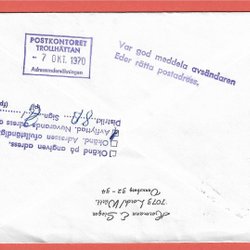 POSTKONTORET
TROLLHÄTTAN
- 7 OKT. 1970
Adressundersökningen
Var god meddela avsändaren
Eder rätta postadress.
☐ Okänd på angiven adress.
☐ Okänd. Adressen ofullständig
Avflyttad. Nuvarande adress
Distrikt 8A Sign.
Hermann E. Sieger
7073 Lorch/Württ.
Venusberg 32-34